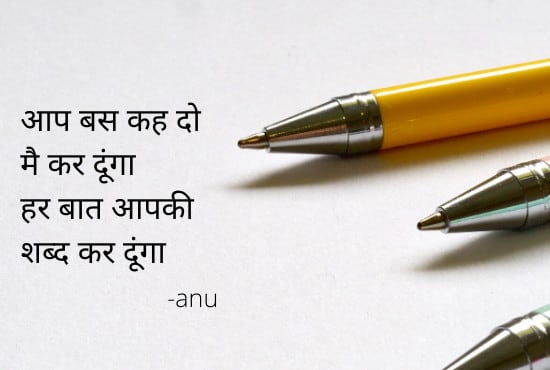 आप बस कह दो
मै कर दूंगा
हर बात आपकी
शब्द कर दूंगा
-anu